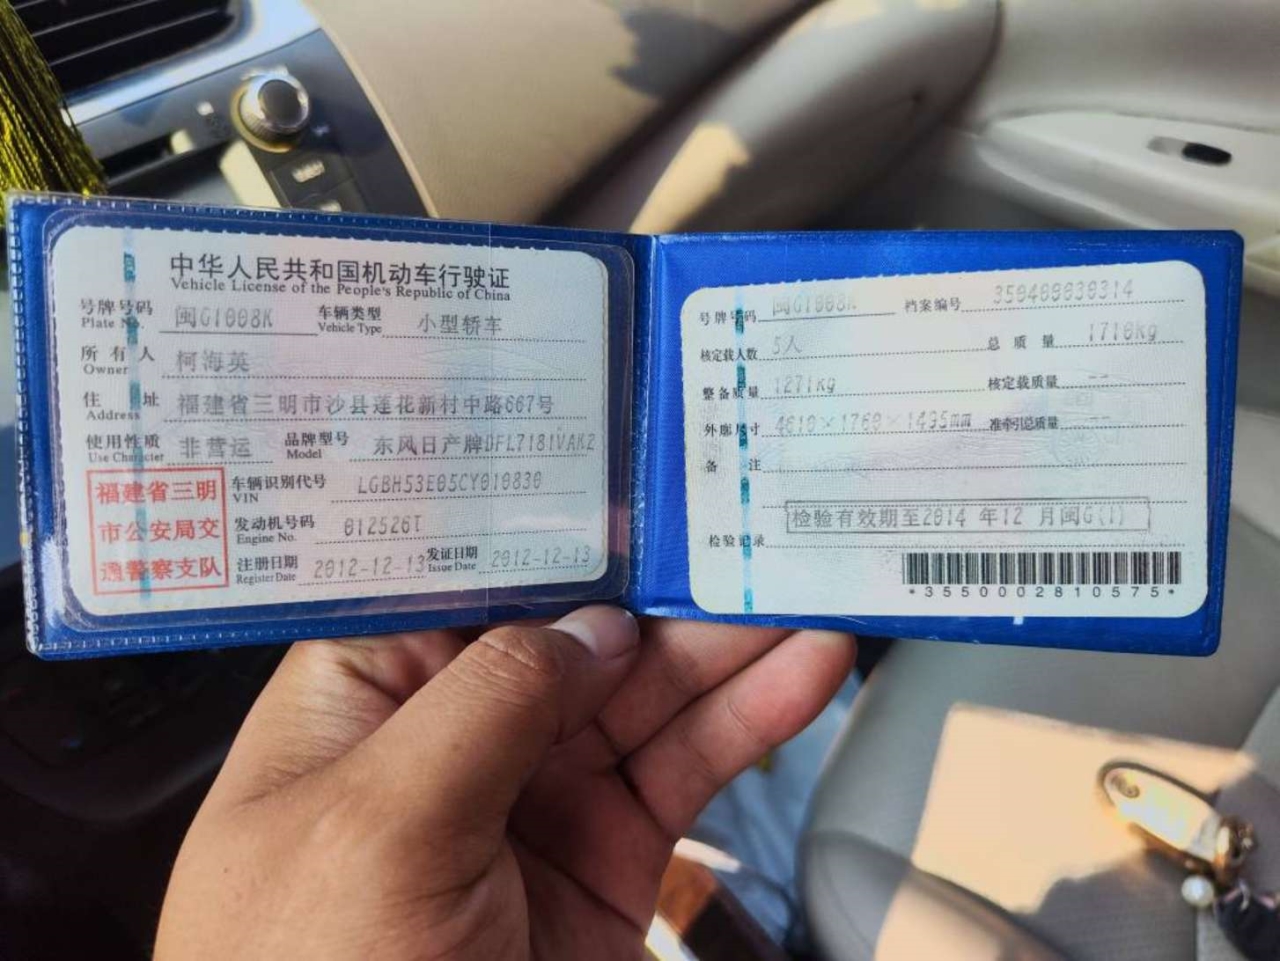 中华人民共和国机动车行驶证
Vehicle License of the People's Republic of China
号牌号码 Plate No. 闽G1008K 车辆类型 Vehicle Type 小型轿车
所有人 Owner 柯海英
住址 Address 福建省三明市沙县莲花新村中路667号
使用性质 Use Character 非营运 品牌型号 Model 东风日产牌DFL7181VAK2
福建省三明
市公安局交
通警察支队
车辆识别代号 VIN LGBH53E05CY010830
发动机号码 Engine No. 012526T
注册日期 Register Date 2012-12-13 发证日期 Issue Date 2012-12-13
号牌号码 闽G1008K 档案编号
核定载人数 5人 总质量 1710kg
整备质量 1271kg 核定载质量 --
外廓尺寸 4610×1760×1495mm 准牵引总质量 --
备注
检验有效期至2014 年12 月闽G(1)
检验记录
*3550002810575*